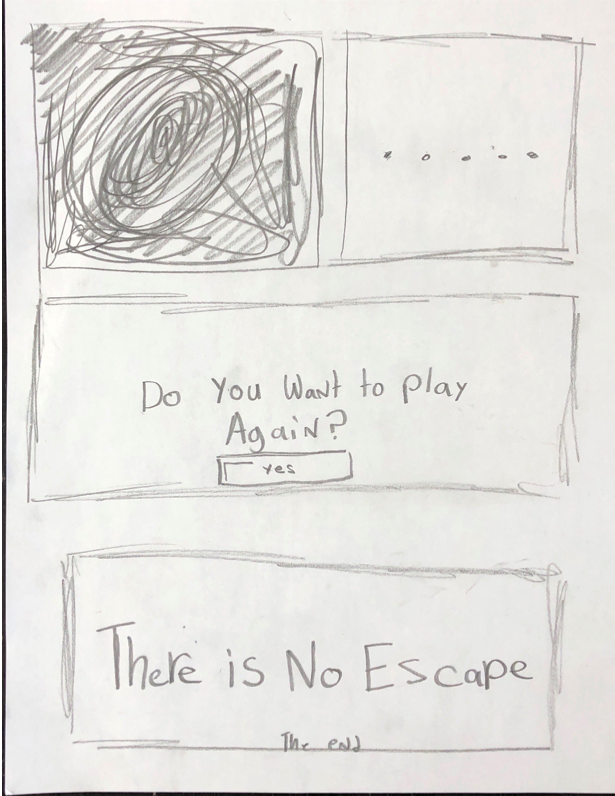 .....
Do You Want to play
Again?
Yes
There is No Escape
The end